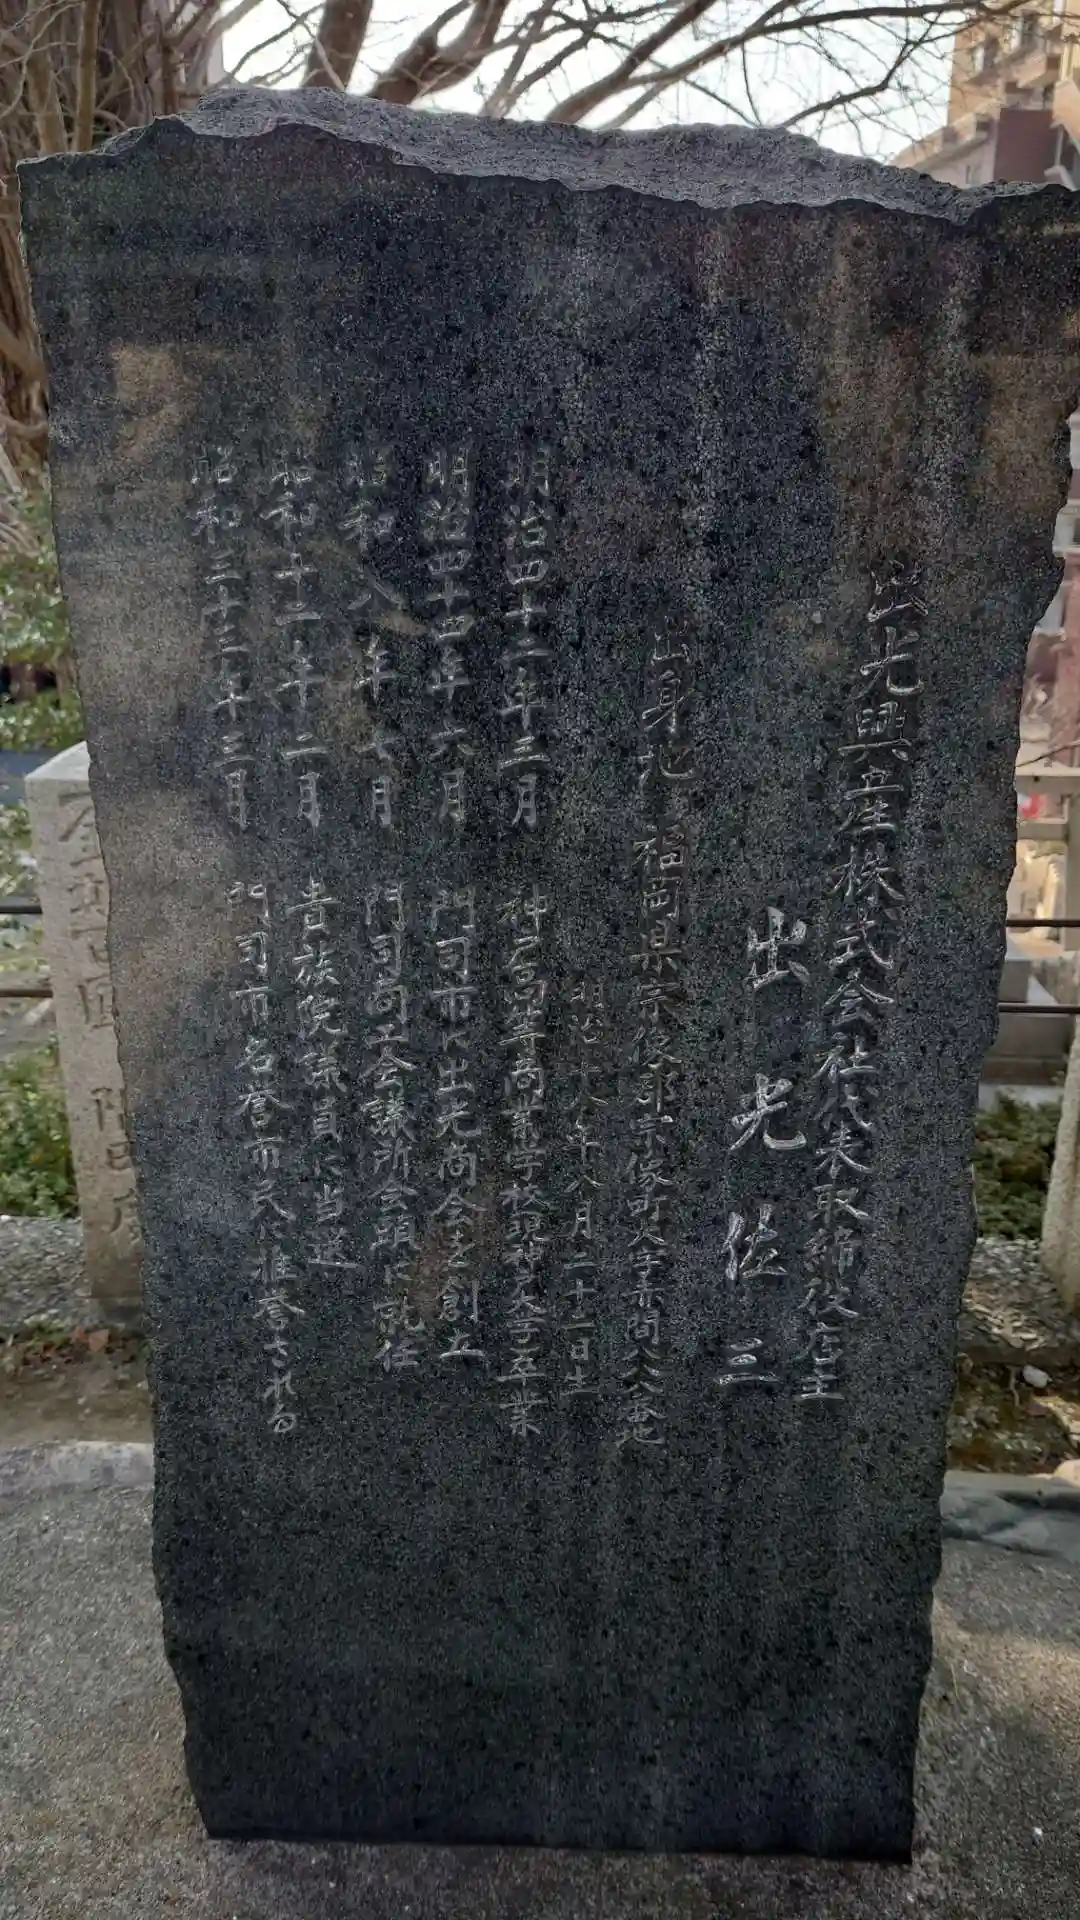 出光興産株式会社代表取締役店主
出光佐三
出身地 福岡県宗像郡宗像町大字赤間八八番地
明治十八年八月二十二日生
明治四十二年三月 神戸高等商業学校現神戸大学卒業
明治四十四年六月 門司市に出光商会を創立
昭和八年七月 門司商工会議所会頭に就任
昭和十二年二月 貴族院議員に当選
昭和三十三年三月 門司市名誉市民に推誉される